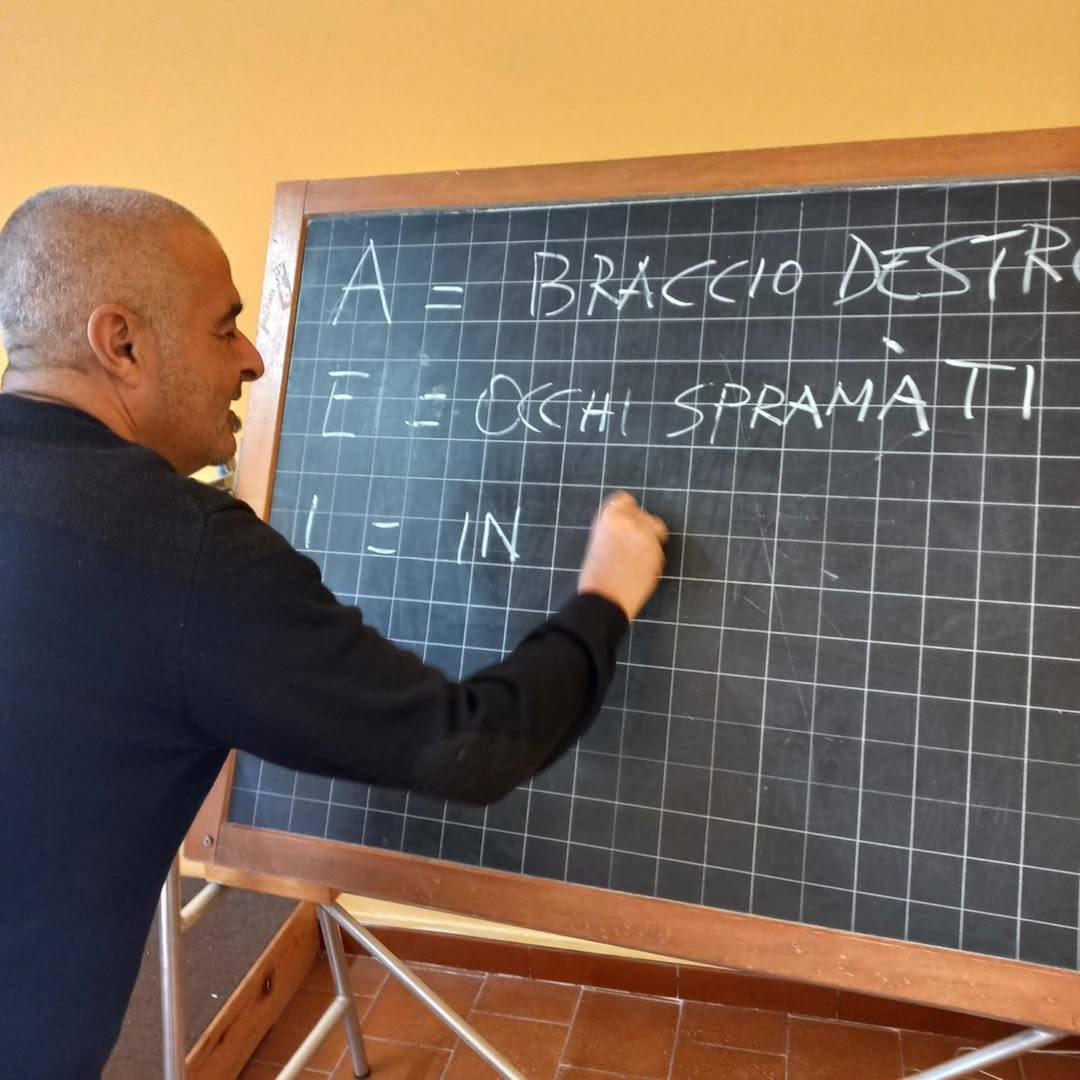 A = BRACCIO DESTRO
E = OCCHI SPRAMÀTI
I = IN